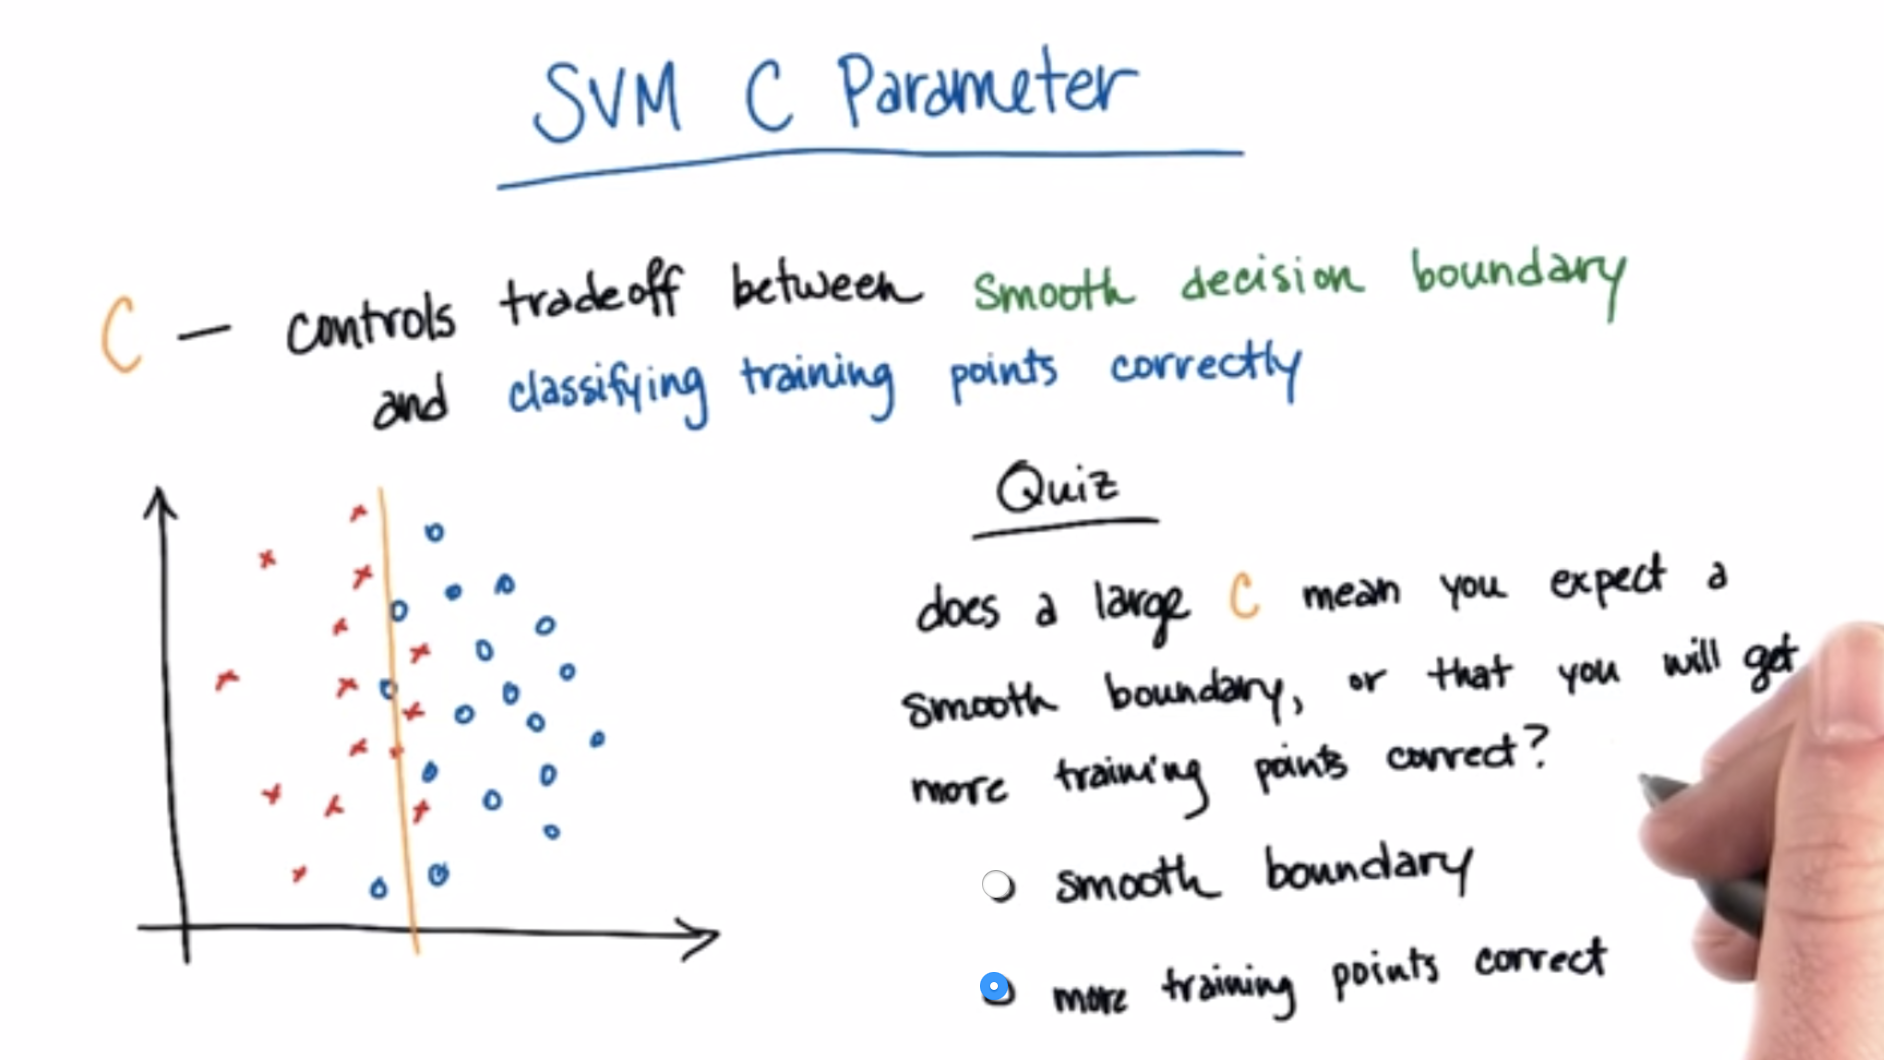 SVM C Parameter
C — controls tradeoff between smooth decision boundary
and classifying training points correctly
Quiz
does a large C mean you expect a
smooth boundary, or that you will get
more training points correct?
smooth boundary
more training points correct